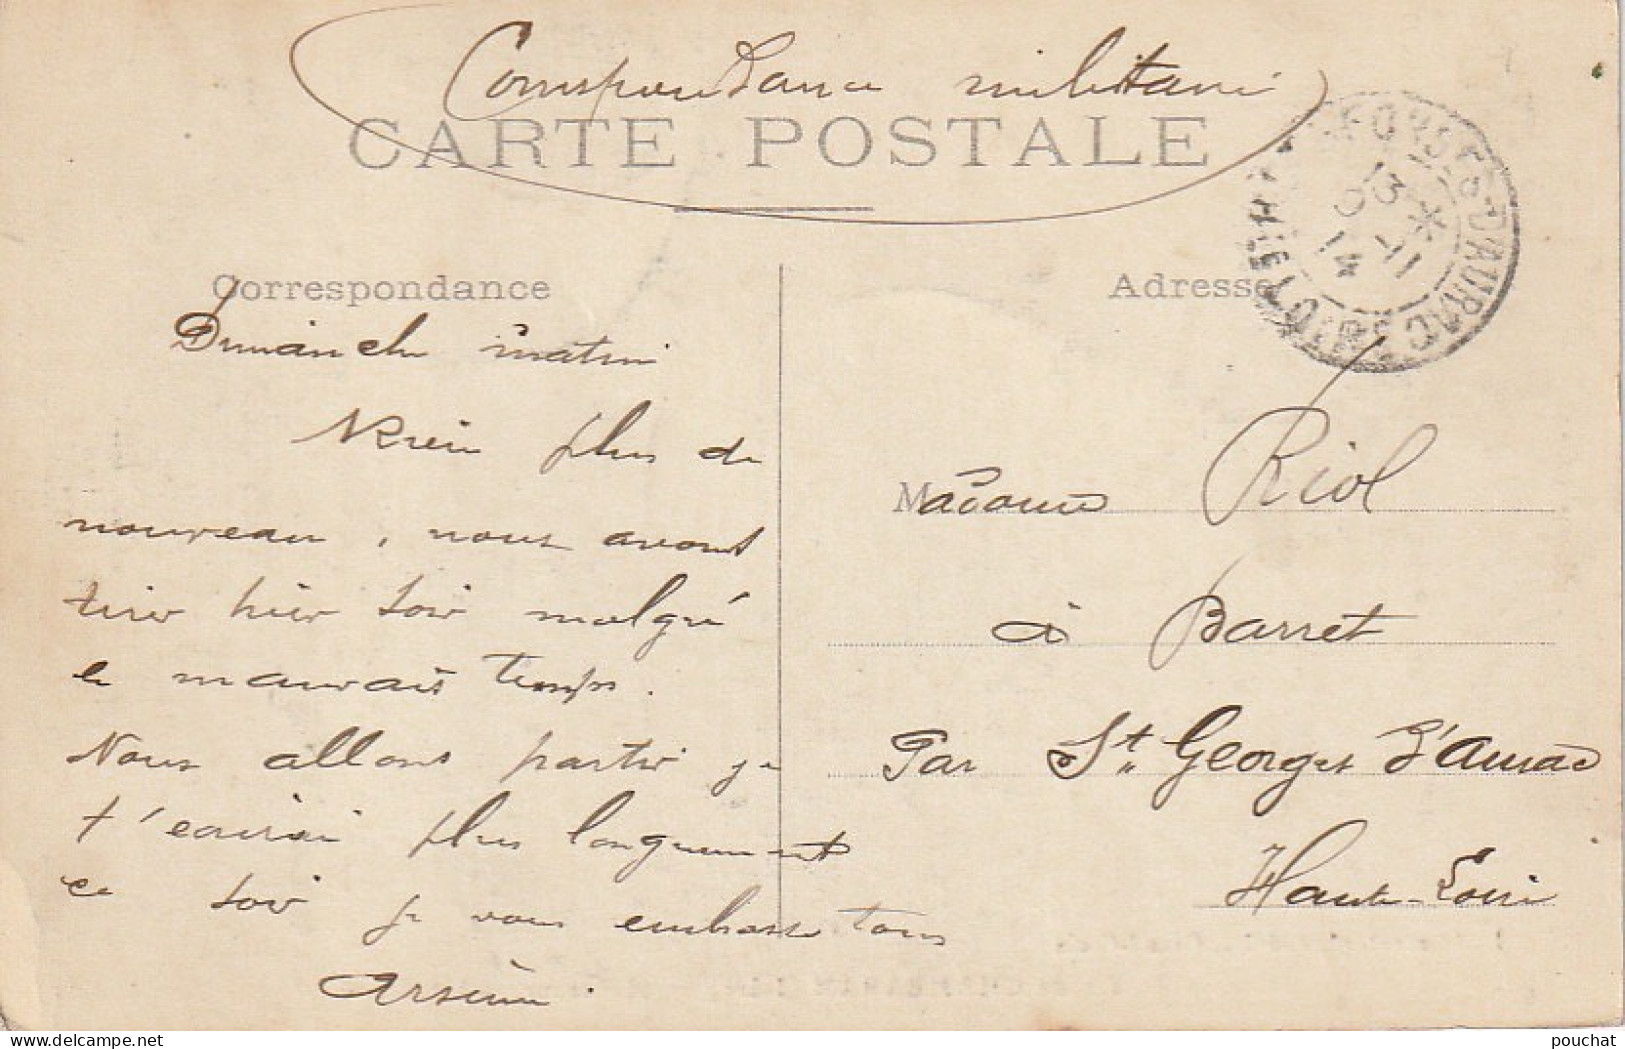 Correspondance militaire
CARTE POSTALE
Correspondance
Adresse
ST GEORGES D'AURAC
HTE LOIRE
13
11
14
Dimanche matin
Rien plus de
nouveau, nous avons
tiré hier soir malgré
le mauvais temps.
Nous allons partir je
t'écrirai plus longuement
ce soir je vous embrasse tous
Arsène
Madame Riol
à Barret
Par St Georges d'Aurac
Haute-Loire
pouchat